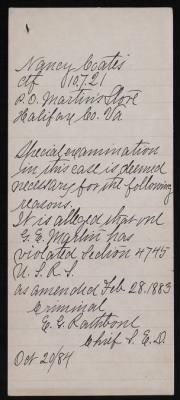 Nancy Coates
Ctf 10721
P.O. Martin's Store
Halifax Co. Va.
Special examination
in this case is deemed
necessary for the following
reasons.
It is alleged that one
G. E. Martin has
violated Section 4745
U. S. R. S.
as amended Feb. 28. 1883
Criminal
E. G. Rathbone
Chief S. E. D.
Oct 20/84